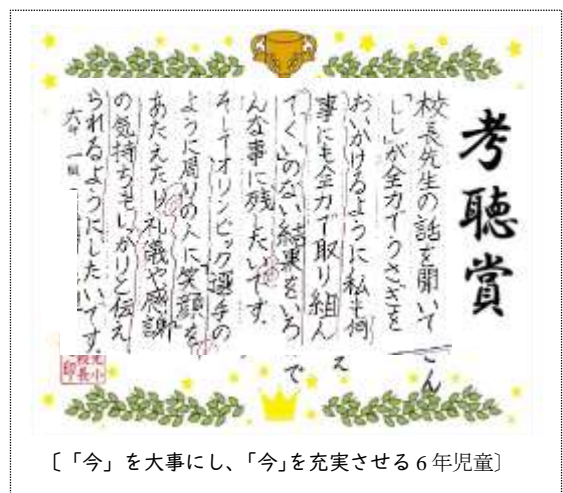 考聴賞
校長先生の話を聞いて
「しし」が全力でうさぎを
おいかけるように私も何
事にも全力で取り組ん
でくいのない結果をいろ
んな事に残したいです。
そしてオリンピック選手の
ように周りの人に笑顔を
あたえたり礼儀や感謝
の気持ちもしっかりと伝え
られるようにしたいです。
六年 一組
ん
え
で
〔「今」を大事にし、「今」を充実させる6年児童〕